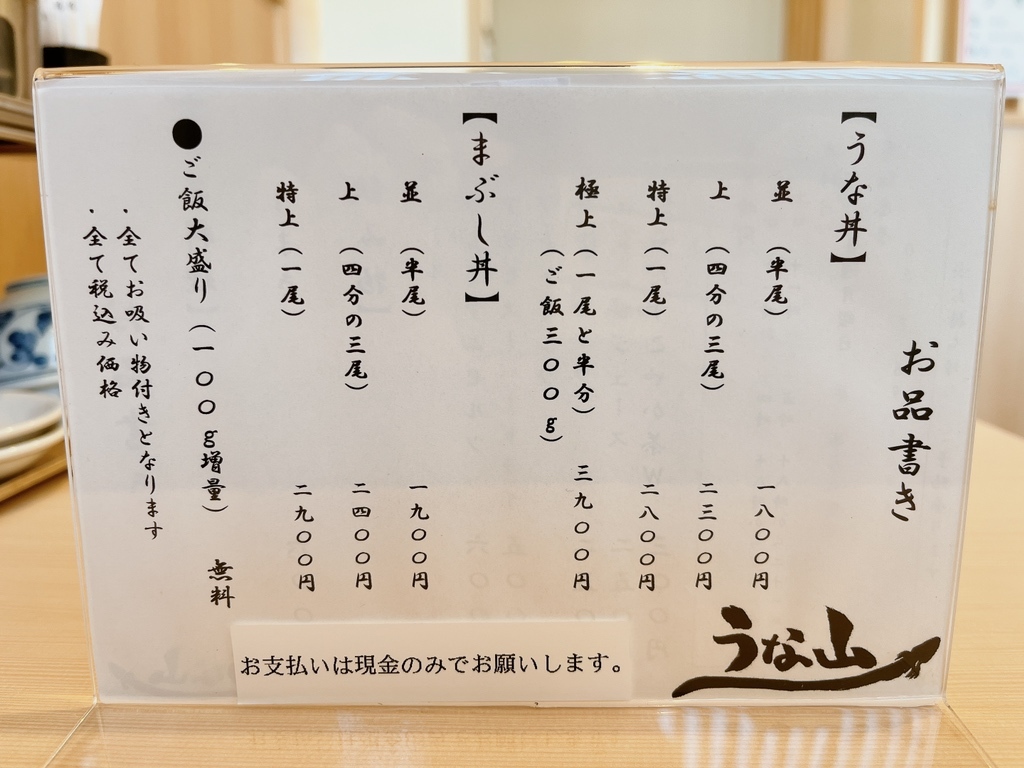 お品書き
【うな丼】
並 （半尾） 一八〇〇円
上 （四分の三尾） 二三〇〇円
特上（一尾） 二八〇〇円
極上（一尾と半分） 三九〇〇円
（ご飯三〇〇g）
【まぶし丼】
並 （半尾） 一九〇〇円
上 （四分の三尾） 二四〇〇円
特上（一尾） 二九〇〇円
●ご飯大盛り（一〇〇g増量） 無料
・全てお吸い物付きとなります
・全て税込み価格
お支払いは現金のみでお願いします。
うな山